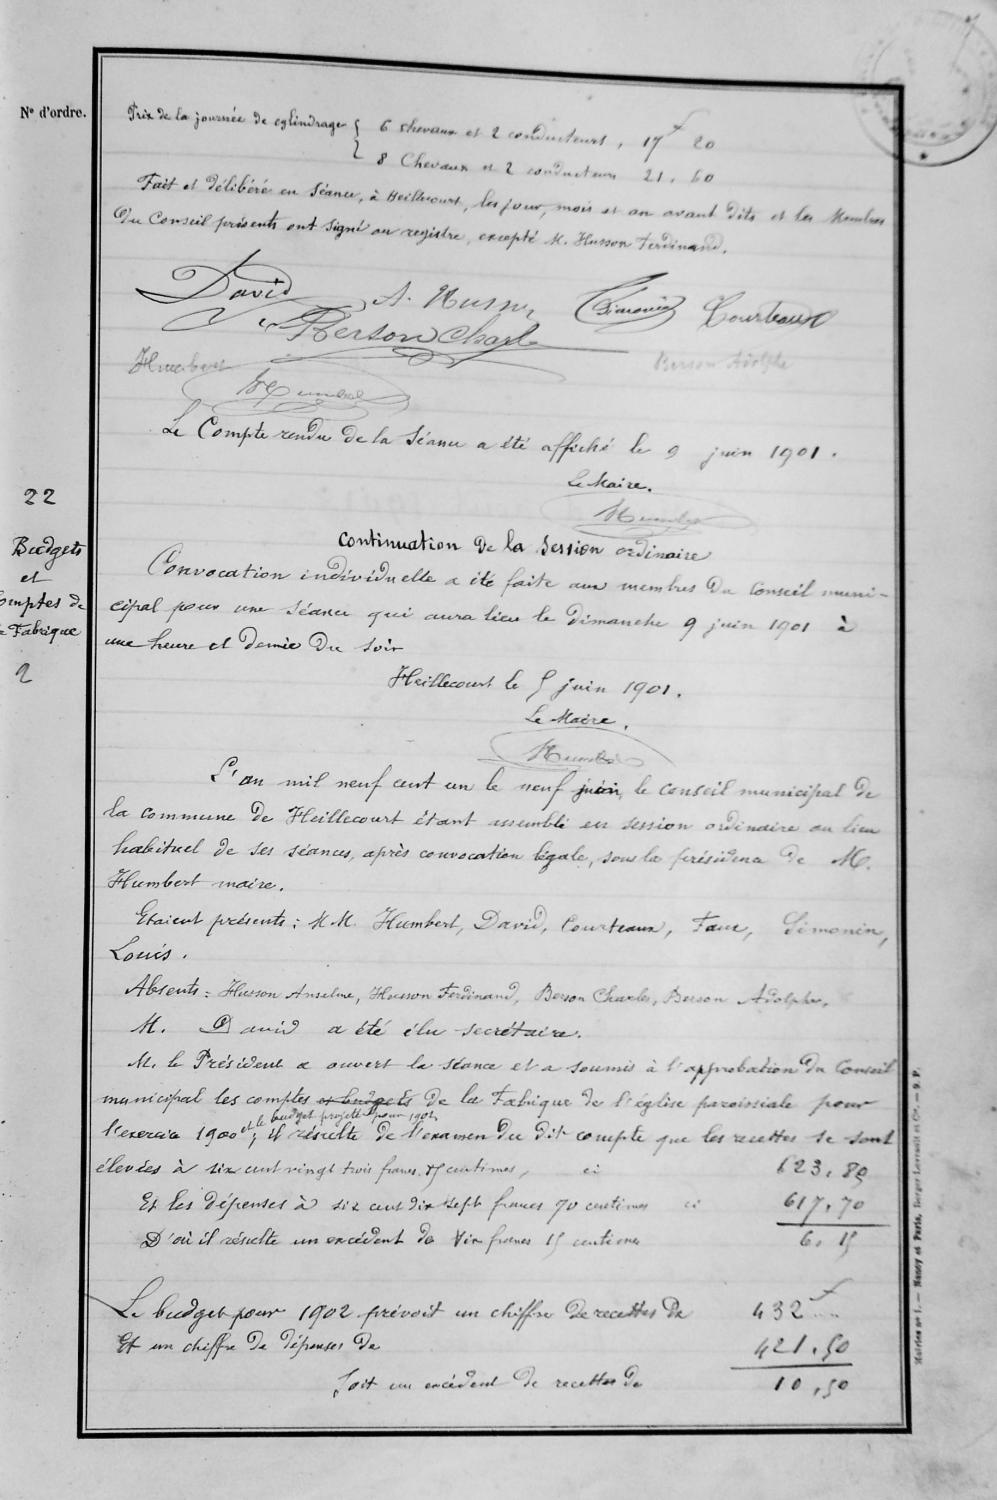 N° d'ordre.
Prix de la journée de cylindrage { 6 chevaux et 2 conducteurs, 17 f 20
8 Chevaux et 2 conducteurs 21. 60
Fait et délibéré en Séance, à Heillecourt, les jour, mois et an avant dits et les Membres
du Conseil présents ont signé au registre, excepté M. Husson Ferdinand.
David A. Husson Simonin Courteaux
Berson Charles
Humbert Berson Adolphe
Humbert
Le Compte rendu de la Séance a été affiché le 9 juin 1901.
Le Maire.
Humbert
22
Budgets
et
Comptes de
la Fabrique
2
Continuation de la Session ordinaire
Convocation individuelle a été faite aux membres du Conseil muni-
cipal pour une séance qui aura lieu le Dimanche 9 juin 1901 à
une heure et demie du soir
Heillecourt le 5 juin 1901.
Le Maire.
Humbert
L'an mil neuf cent un le neuf juin, le conseil municipal de
la commune de Heillecourt étant assemblé en session ordinaire au lieu
habituel de ses séances, après convocation légale, sous la présidence de M.
Humbert maire.
Etaient présents: M.M. Humbert, David, Courteaux, Faux, Simonin,
Louis.
Absents: Husson Anselme, Husson Ferdinand, Berson Charles, Berson Adolphe,
M. David a été élu secrétaire.
M. le Président a ouvert la séance et a soumis à l'approbation du Conseil
municipal les comptes et budgets de la Fabrique de l'église paroissiale pour
et le budget projeté pour 1902
l'exercice 1900; il résulte de l'examen du dit compte que les recettes se sont
élevées à six cent vingt trois francs 85 centimes, ci 623,85
Et les dépenses à six cent dix sept francs 70 centimes ci 617,70
D'où il résulte un excédent de six francs 15 centimes 6.15
Le budget pour 1902 prévoit un chiffre de recettes de 432 f ..
Et un chiffre de dépenses de 421,50
Soit un excédent de recettes de 10,50
Mairies n° 1. — Nancy et Paris, Berger-Levrault et Cie. — 9 P.